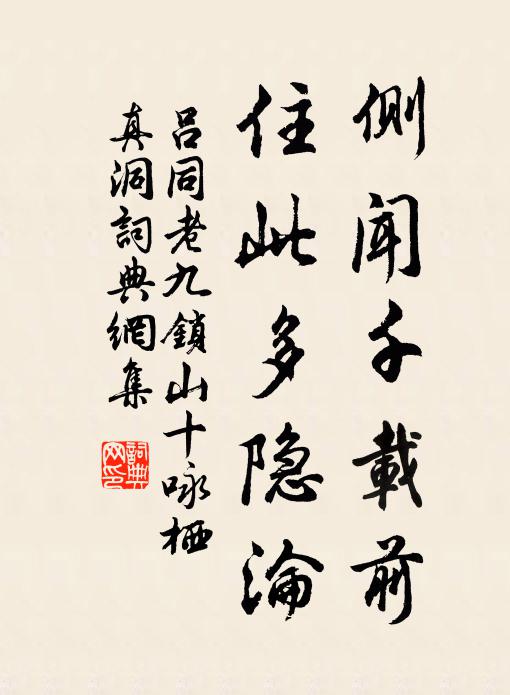 側聞千載前
住此多隐淪
呂同老九鎖山十咏栖
真洞詞典網集
詞典
网印